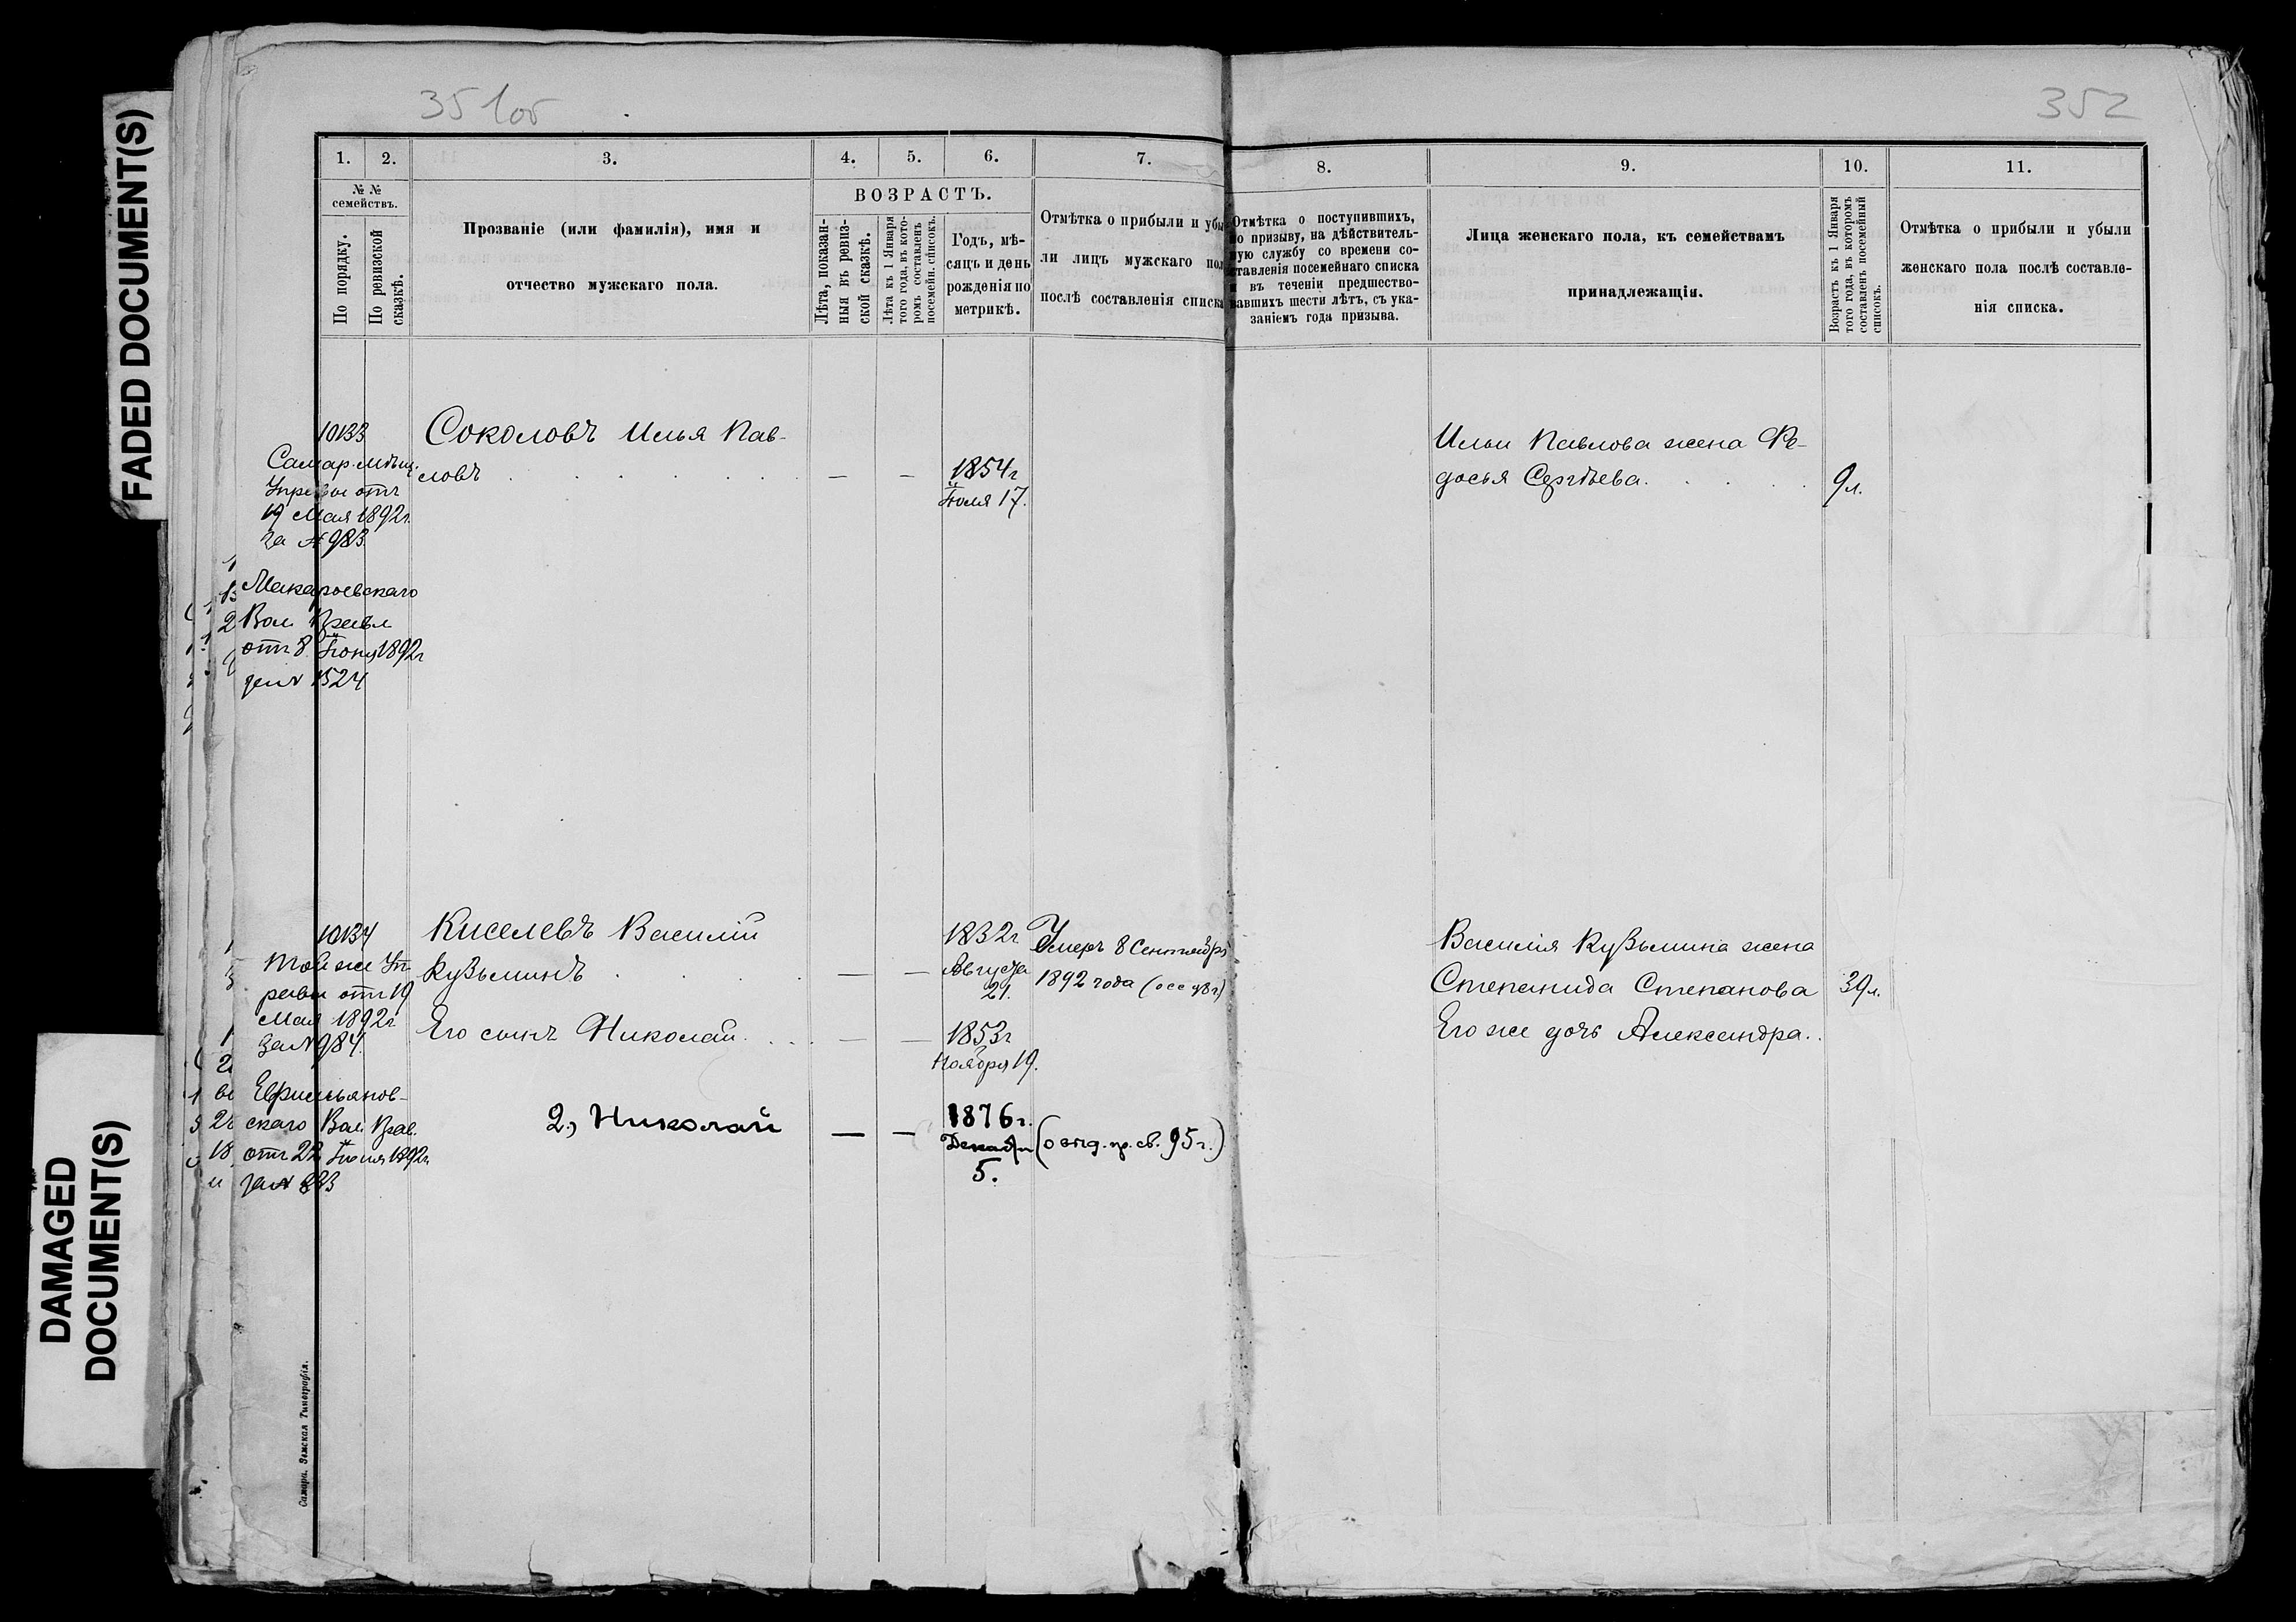 FADED DOCUMENT(S)
DAMAGED
DOCUMENT(S)
351об
352
1.
2.
3.
4.
5.
6.
7.
8.
9.
10.
11.
№ №
семействъ.
По порядку.
По ревизской
сказкѣ.
Прозваніе (или фамилія), имя и
отчество мужскаго пола.
ВОЗРАСТЪ.
Лѣта, показан-
ныя въ ревиз-
ской сказкѣ.
Лѣта къ 1 Января
того года, въ кото-
ромъ составленъ
посемейн. списокъ.
Годъ, мѣ-
сяцъ и день
рожденія по
метрикѣ.
Отмѣтка о прибыли и убы
ли лицъ мужскаго пол
послѣ составленія списка
Отмѣтка о поступившихъ,
по призыву, на дѣйствитель-
ную службу со времени со-
ставленія посемейнаго списка
и въ теченіи предшество-
вавшихъ шести лѣтъ, съ ука-
заніемъ года призыва.
Лица женскаго пола, къ семействамъ
принадлежащія.
Возрастъ къ 1 Января
того года, въ которомъ
составленъ посемейный
списокъ.
Отмѣтка о прибыли и убыли
женскаго пола послѣ составле-
нія списка.
10133
Самар. Мѣщ.
Управы отъ
19 Мая 1892г.
за № 983
Макарьевскаго
Вол. Правл
отъ 8 Іюня 1892г
за № 1524
Соколовъ Илья Пав-
ловъ
— —
1854г
Іюля 17.
Ильи Павлова жена Фе-
досья Сергѣева.
9л.
10134
Той же Уп-
равы отъ 19
Мая 1892г
за № 984.
скаго Вол. Прав.
отъ 22 Іюня 1892г.
за № 883
Киселевъ Василій
Кузьминъ
— —
1832г
Августа
21.
Умеръ 8 Сентября
1892 года
Его сынъ Николай.
— —
1853г
Ноября 19.
2., Николай
— —
1876г.
Декабря
5.
95г.)
Василія Кузьмина жена
Степанида Степанова
39л.
Его же дочь Александра.
Самара. Земская Типографія.